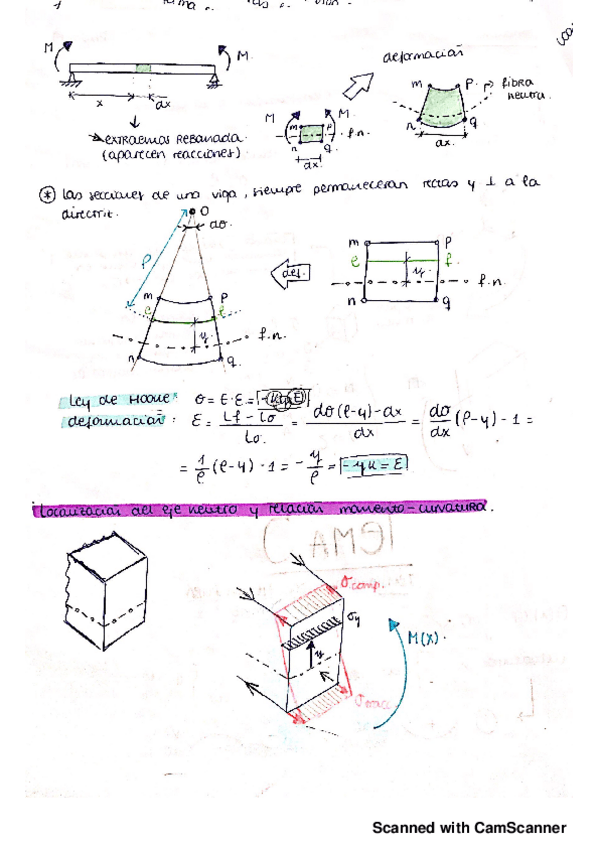 M
M.
x
dx
→ extraemos Rebanada.
(aparecen reacciones).
deformación
M
M.
m
p
f.n.
n
q
dx.
m
p.
fibra
neutra.
n
q
dx.
* Las secciones de una viga, siempre permanecerán rectas y ⊥ a la
directriz.
O
dθ.
ρ
m
p
e
f
y.
f.n.
n
q.
def.
m
p
e
f.
y.
f.n.
n
q
Ley de Hooke: σ = E·ε =
deformación: ε = (Lf - Lo)/Lo = (dθ(ρ-y)-dx)/dx = dθ/dx (ρ-y) - 1 =
= 1/ρ (ρ-y) · 1 = - y/ρ = -yκ = ε
Localización del eje neutro y relación momento-curvatura.
σcomp.
σy
y
M(x).
σtracc.
Scanned with CamScanner